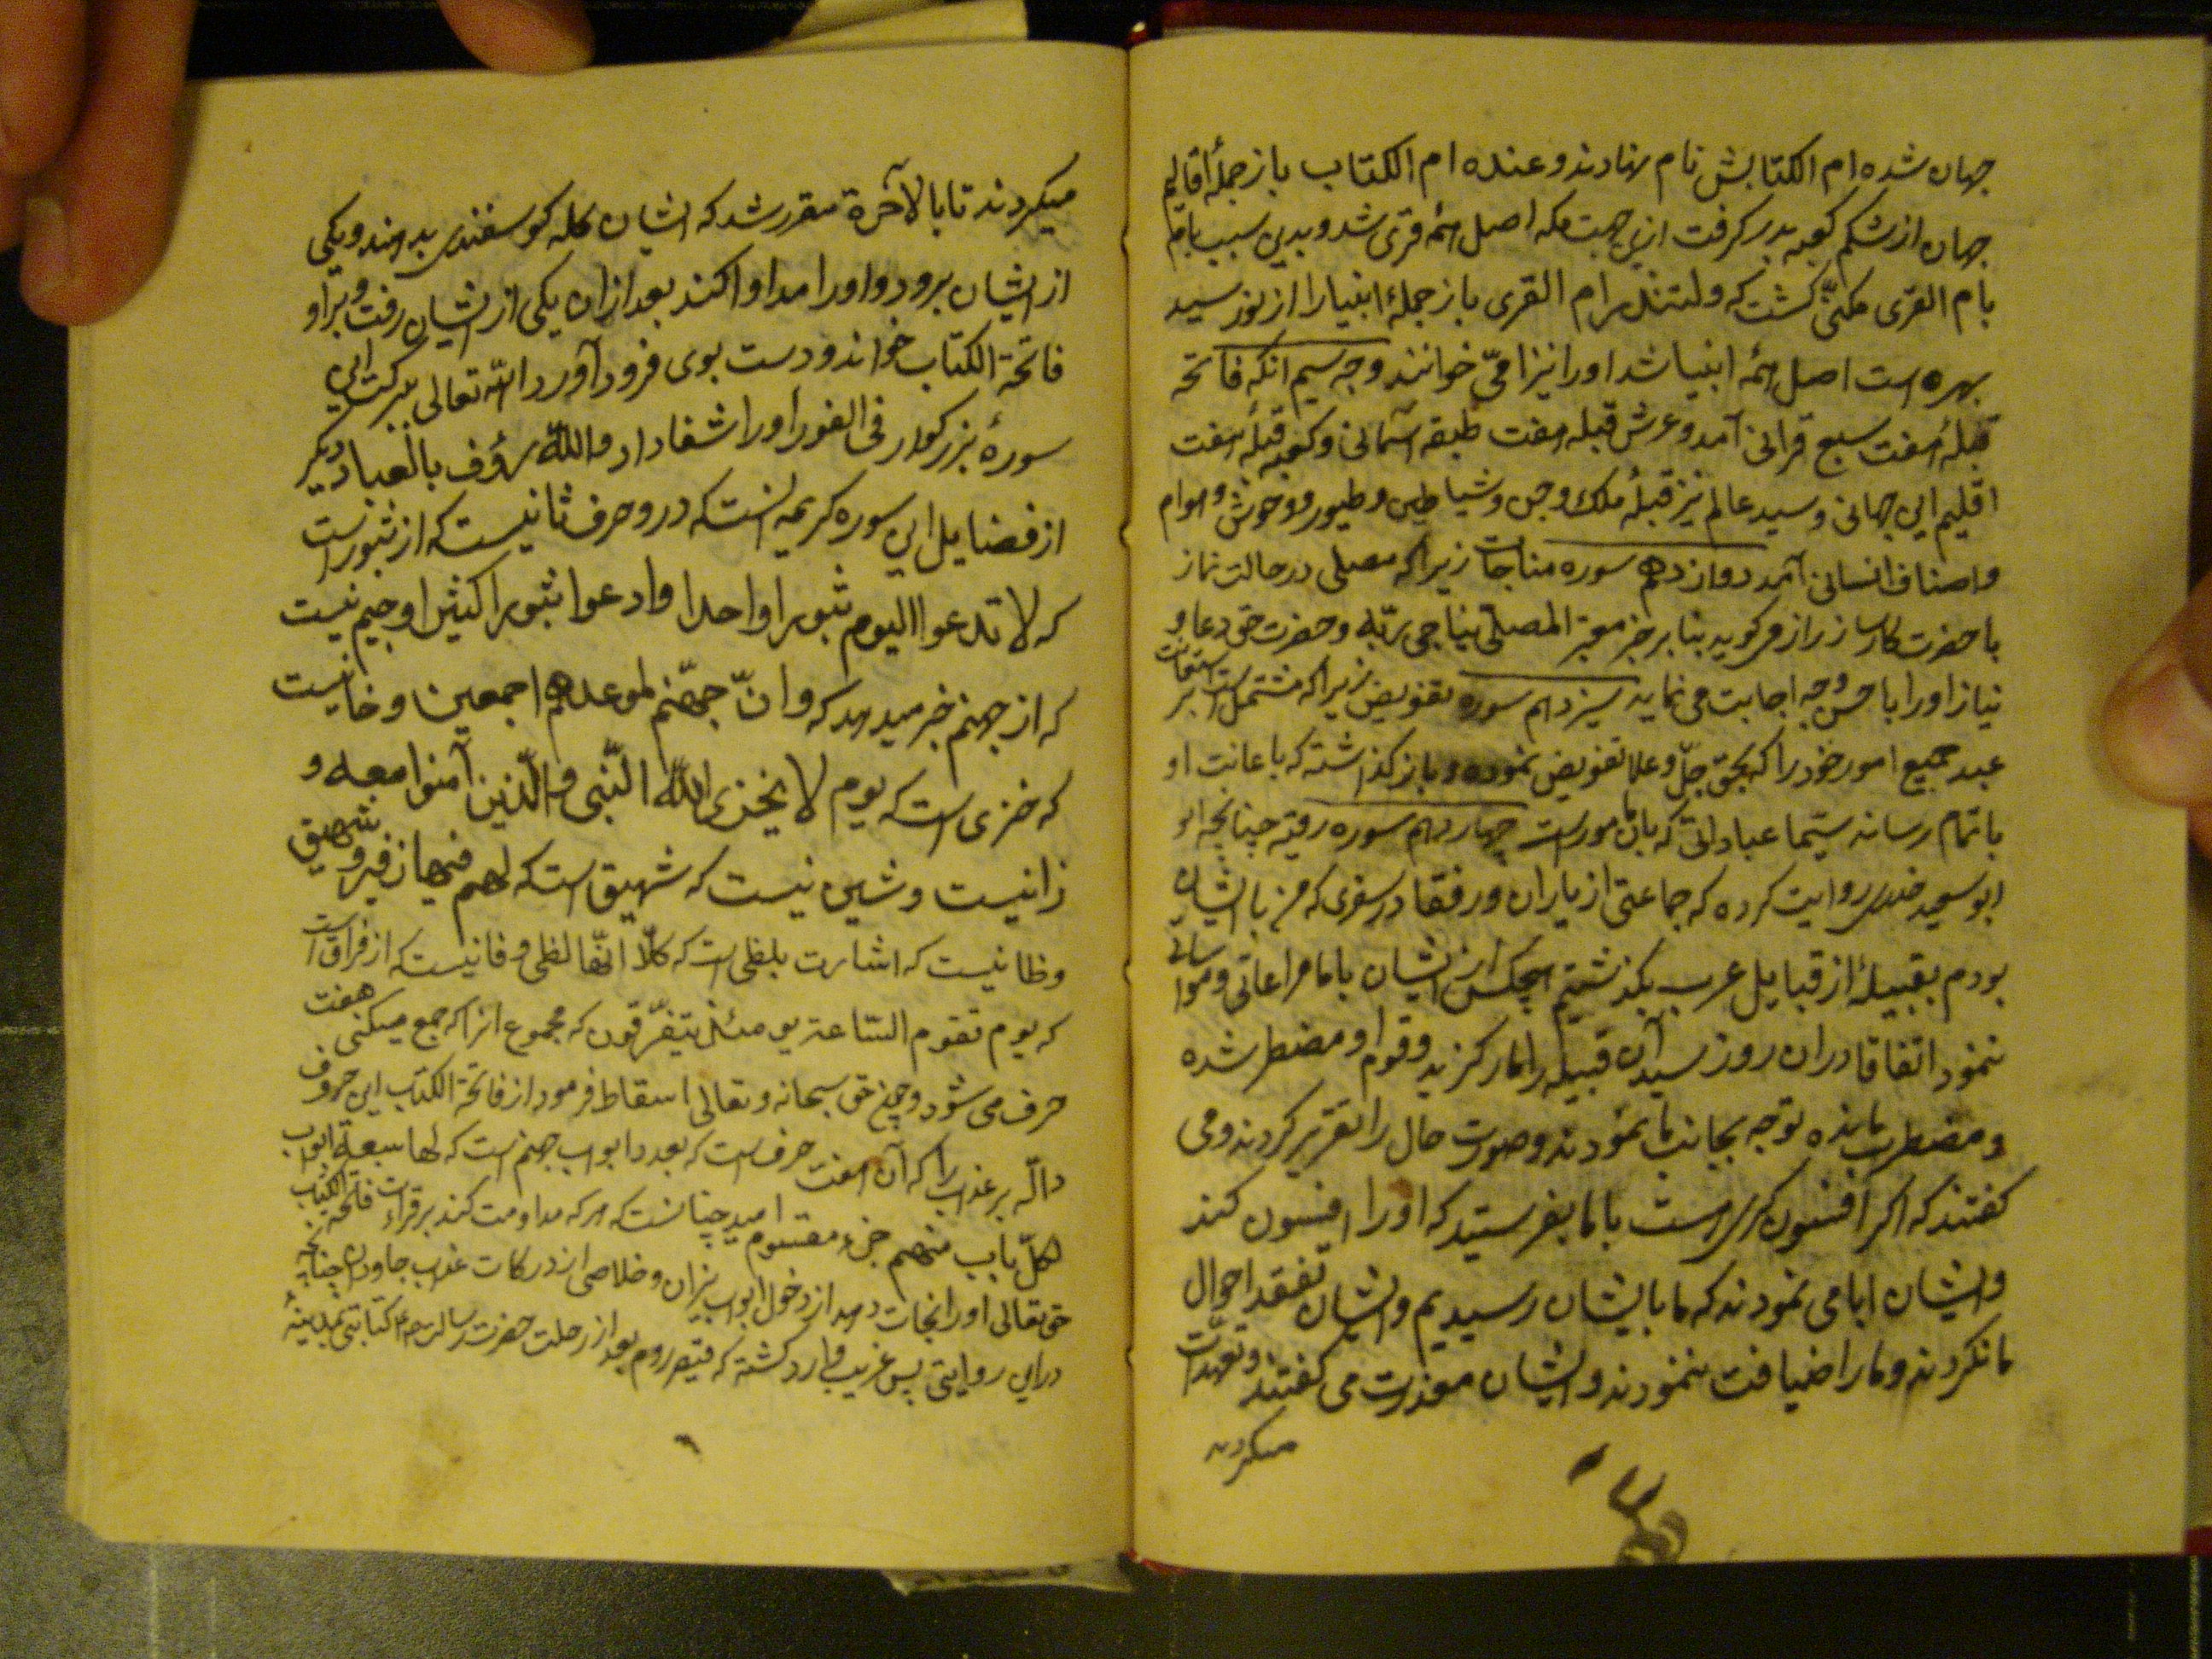 جهان شده ام الکتابش نام نهادند و عنده ام الکتاب باز جملهٔ اقالیم
جهان از شکم کعبه بدر کرفت ازین جهت مکه اصل همه قری شد و بدین سبب
بام القری مکنّی کشت که ولتنذر ام القری باز جملهٔ انبیا را از نور سید
بهره است اصل همهٔ انبیا شد او را نیز امّی خوانند وجه سیم انکه فاتحه
قبلهٔ هفت سبع قرانی آمد و عرش قبله هفت طبقه آسمانی و کعبه قبلهٔ هفت
اقلیم این جهانی و سید عالم نیز قبلهٔ ملک و جن و شیاطین و طیور و وحوش و هوام
و اصناف انسانی آمد دوازدهم سوره مناجات زیرا که مصلی در حالت نماز
با حضرت کارساز راز می کوید بنا بر خبر معتبر المصلّی یناجی ربّه و حضرت حق دعا و
نیاز او را باحسن وجه اجابت می نماید سیزدهم سوره تفویض زیرا که مشتمل است بر استعانت
عبد جمیع امور خود را که بحق جلّ و علا تفویض نموده و باز کذاشته که باعانت او
باتمام رساند سیّما عباداتی که بان مورست چهاردهم سوره رقیه چنانچه
ابو سعید خدری روایت کرده که جماعتی از یاران و رفقا در سفری که من با ایشان
بودم بقبیلهٔ از قبایل عرب بکذشتیم هیچکس از ایشان با ما مراعاتی و مواساتی
ننمود اتفاقا دران روز سید آن قبیله را مار کزید و قوم او مضطر شده
و مضطرب مانده توجه بجانب ما نمودند و صورت حال را تقریر کردند و می
کفتند که اکر افسون کری هست با ما بفرستید که او را افسون کند
و ایشان ابا می نمودند که ما بایشان رسیدیم و ایشان تفقد احوال
ما نکردند و ما را ضیافت ننمودند و ایشان معذرت می کفتند و تعهدات
میکردند
میکردند تا بالآخرة مقرر شد که ایشان کله کوسفندی بدهند و یکی
از ایشان برود و او را مداوا کند بعد ازان یکی از ایشان رفت و بر او
فاتحة الکتاب خواند و دست بوی فرود آورد الله تعالی ببرکت این
سورهٔ بزرکوار فی الفور او را شفا داد والله رؤف بالعباد دیکر
از فضایل این سوره کریمه انست که درو حرف ثا نیست که از ثبور است
که لا تدعوا الیوم ثبورا واحدا وادعوا ثبورا کثیرا و جیم نیست
که از جهنم خبر میدهد که وانّ جهنّم لموعدهم اجمعین و خا نیست
که خزی است که یوم لا یخزی الله النّبی والّذین آمنوا معه و
زا نیست و شین نیست که شهیق است که لهم فیها زفیر و شهیق
و ظا نیست که اشارت بلظی است که کلّا انّها لظی و فا نیست که از فراق است
که یوم تقوم السّاعة یومئذ یتفرّقون که مجموع انرا که جمع میکنی هفت
حرف می شود و چون حق سبحانه و تعالی اسقاط فرمود از فاتحة الکتاب این حروف
دالّه بر عذاب را که آن هفت حرف است که بعدد ابواب جهنم است که لها سبعة ابواب
لکلّ باب منهم جزء مقسوم امید چنانست که هر که مداومت کند بر قراءت فاتحة الکتاب
حق تعالی او را نجات دهد از دخول ابواب نیران و خلاصی از درکات عذاب جاودان چنانچه
درین روایتی بس غریب وارد کشته که قیصر روم بعد از رحلت حضرت رسالت کتابتی بمدینهٔ